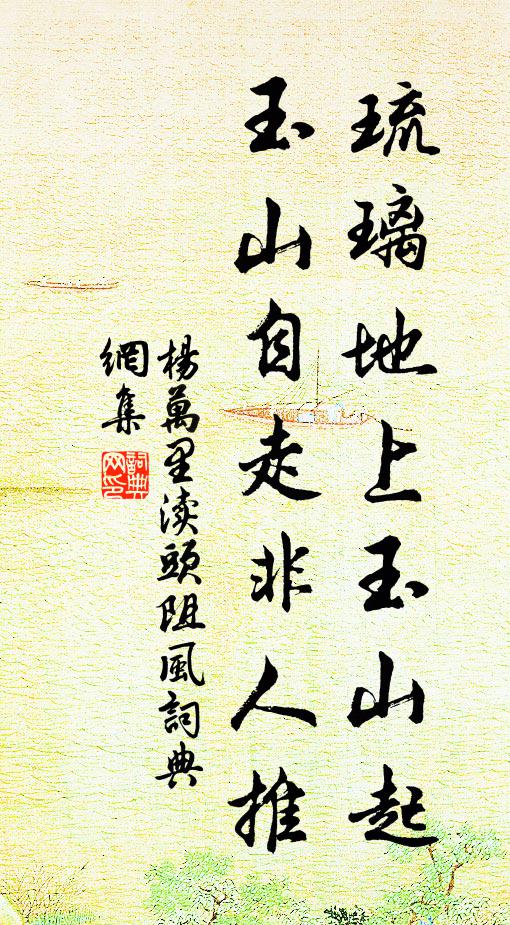 琉璃地上玉山起
玉山自走非人推
楊萬里渎頭阻風詞典
網集
詞典
网印